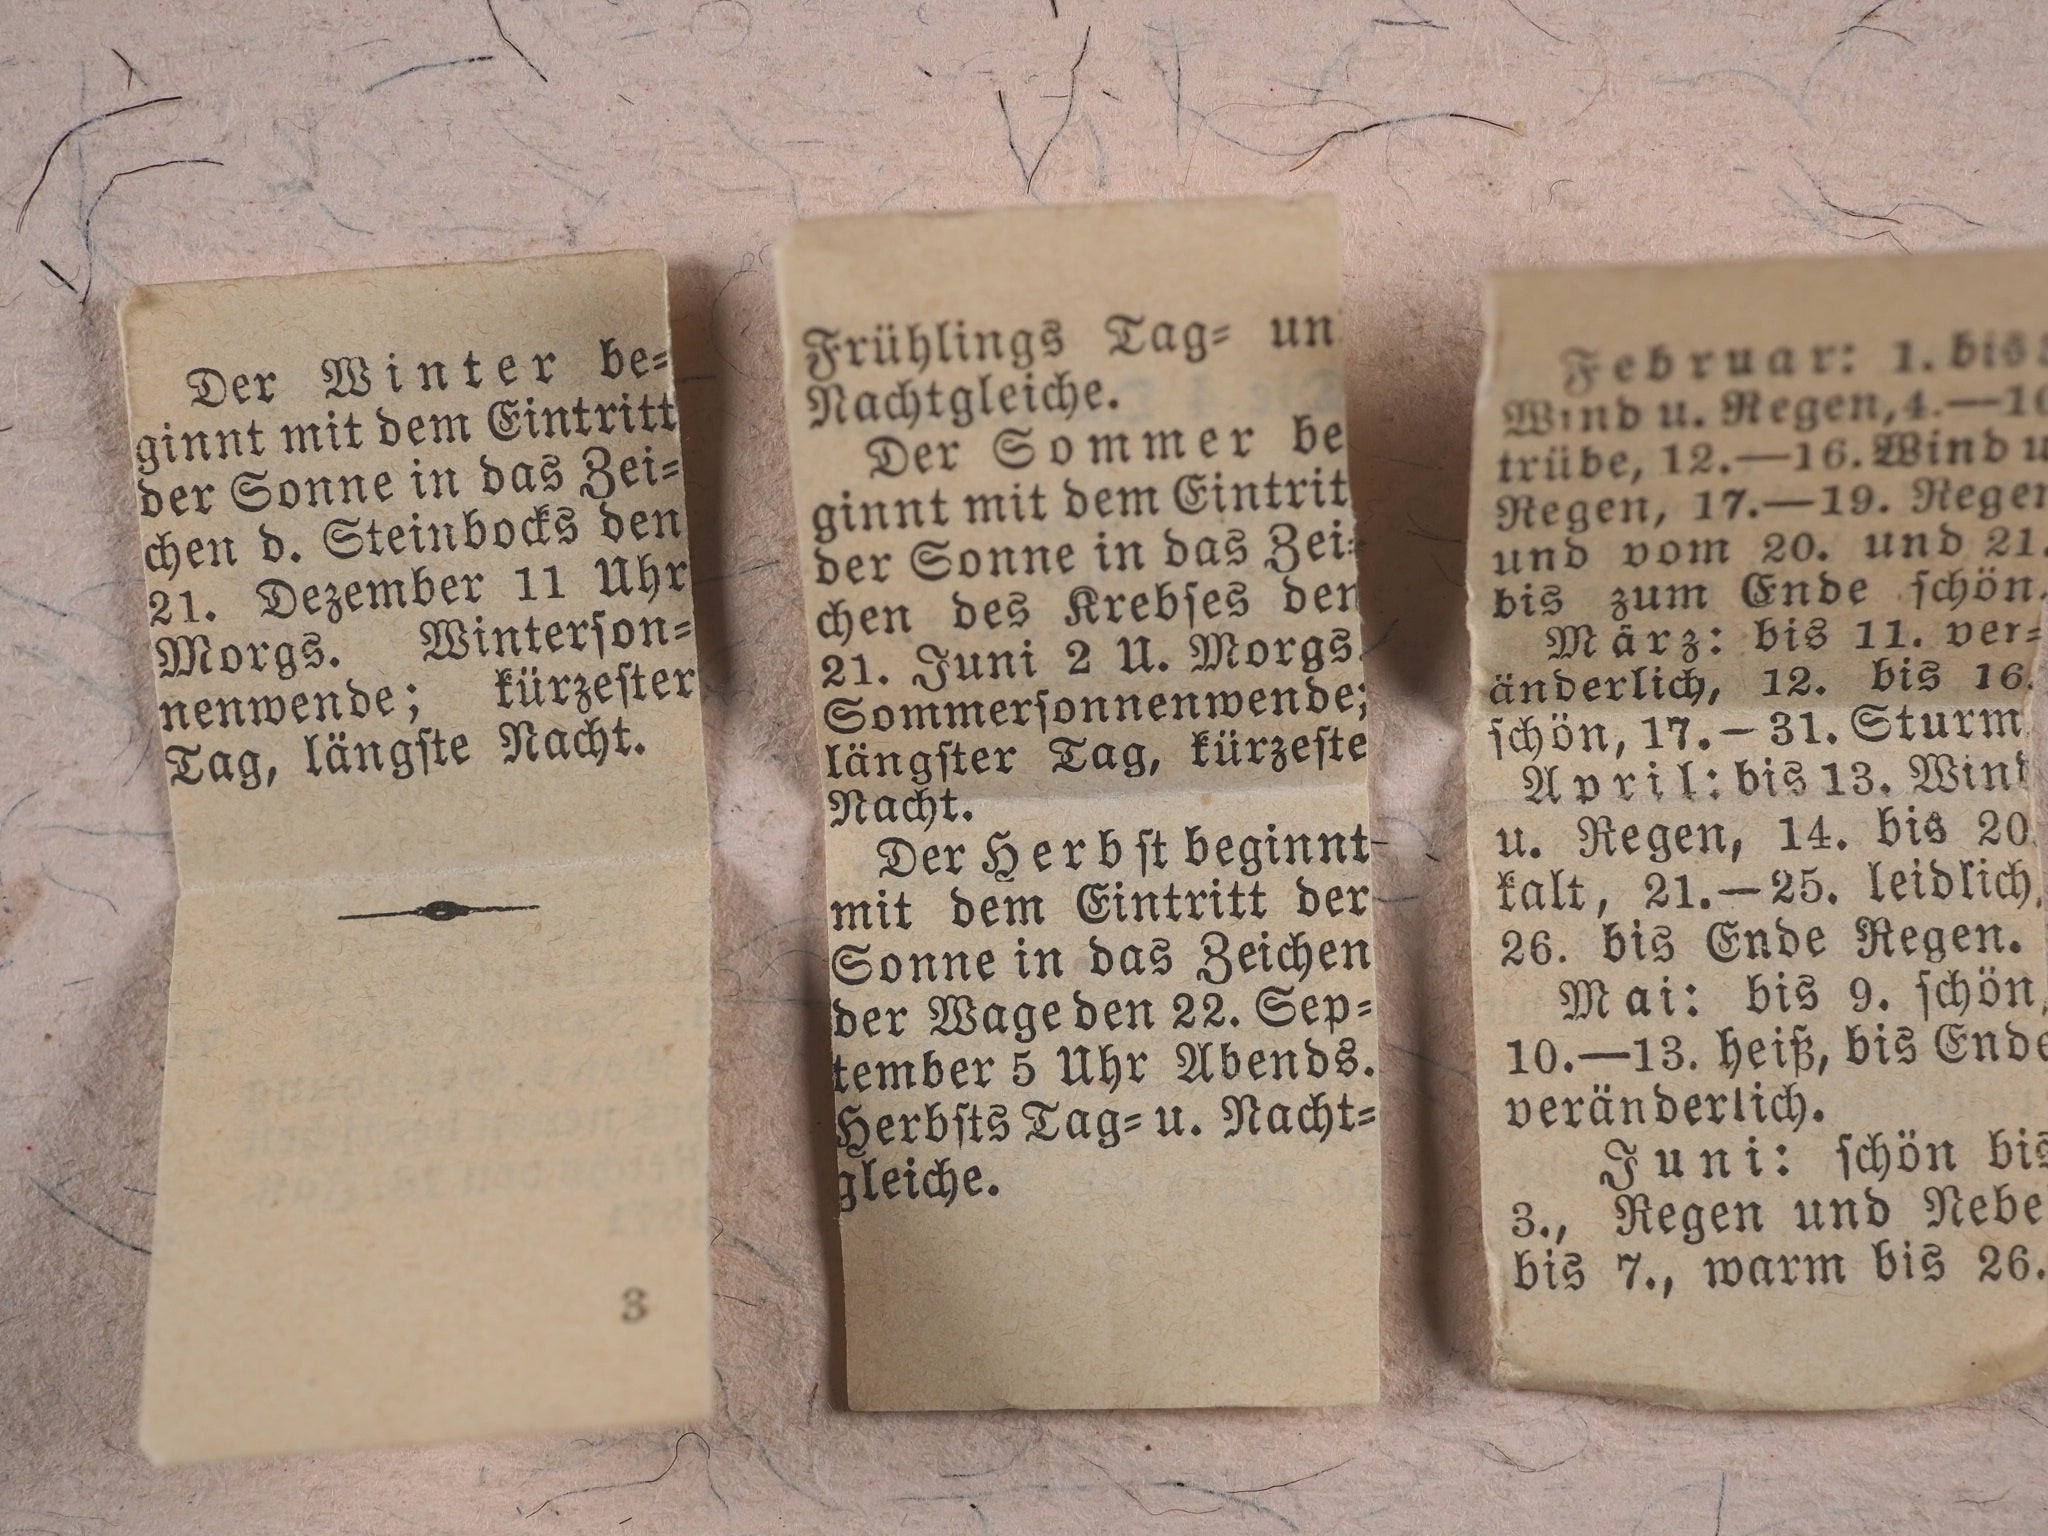 Der Winter be=
ginnt mit dem Eintritt
der Sonne in das Zei=
chen d. Steinbocks den
21. Dezember 11 Uhr
Morgs. Winterſon=
nenwende; kürzeſter
Tag, längſte Nacht.
3
Frühlings Tag= un
Nachtgleiche.
Der Sommer be
ginnt mit dem Eintrit
der Sonne in das Zei=
chen des Krebſes den
21. Juni 2 U. Morgs.
Sommerſonnenwende;
längſter Tag, kürzeſte
Nacht.
Der Herbſt beginnt
mit dem Eintritt der
Sonne in das Zeichen
der Wage den 22. Sep=
tember 5 Uhr Abends.
Herbſts Tag= u. Nacht=
gleiche.
Februar: 1. bis
Wind u. Regen, 4.—10
trübe, 12.—16. Wind u
Regen, 17.—19. Regen
und vom 20. und 21.
bis zum Ende ſchön.
März: bis 11. ver=
änderlich, 12. bis 16.
ſchön, 17.—31. Sturm
April: bis 13. Wind
u. Regen, 14. bis 20
kalt, 21.—25. leidlich,
26. bis Ende Regen.
Mai: bis 9. ſchön,
10.—13. heiß, bis Ende
veränderlich.
Juni: ſchön bis
3., Regen und Nebe
bis 7., warm bis 26.